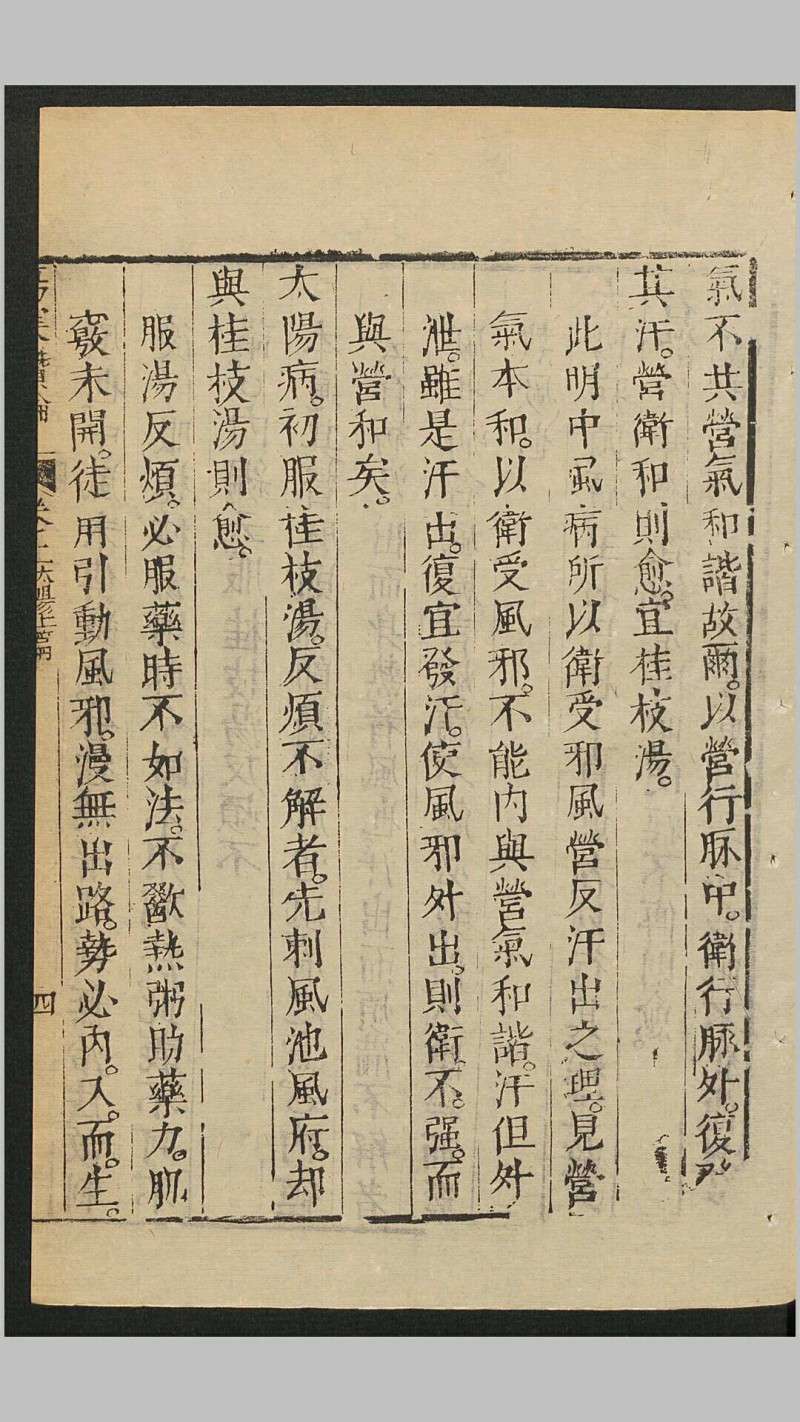 氣不共營氣和諧故爾。以營行脉中。衛行脉外。復發
其汗。營衛和則愈。宜桂枝湯。
此明中風病所以衛受邪風營反汗出之理。見營
氣本和。以衛受風邪。不能内與營氣和諧。汗但外
泄。雖是汗出。復宜發汗。使風邪外出。則衛。不。强。而
與營和矣。
太陽病。初服桂枝湯。反煩不解者。先刺風池風府。却
與桂枝湯則愈。
服湯反煩。必服藥時不如法。不歠熱粥助藥力。肌
竅未開。徒用引動風邪。漫無出路。勢必内。入。而。生。
四